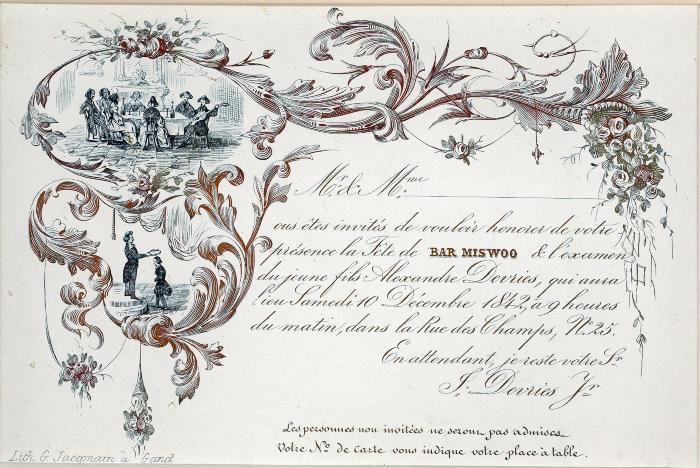 Mr. & Mme
ous êtes invités de vouloir honorer de votre
présence la Fête de BAR MISWOO & l'examen
du jeune fils Alexandre Devries, qui aura
lieu Samedi 10 Décembre 1842, à 9 heures
du matin, dans la Rue des Champs, No. 25.
En attendant, je reste votre Sr.
J. Devries Jr
Les personnes non invitées ne seront pas admises.
Votre No. de Carte vous indique votre place à table.
Lith. G. Jacqmain à Gand